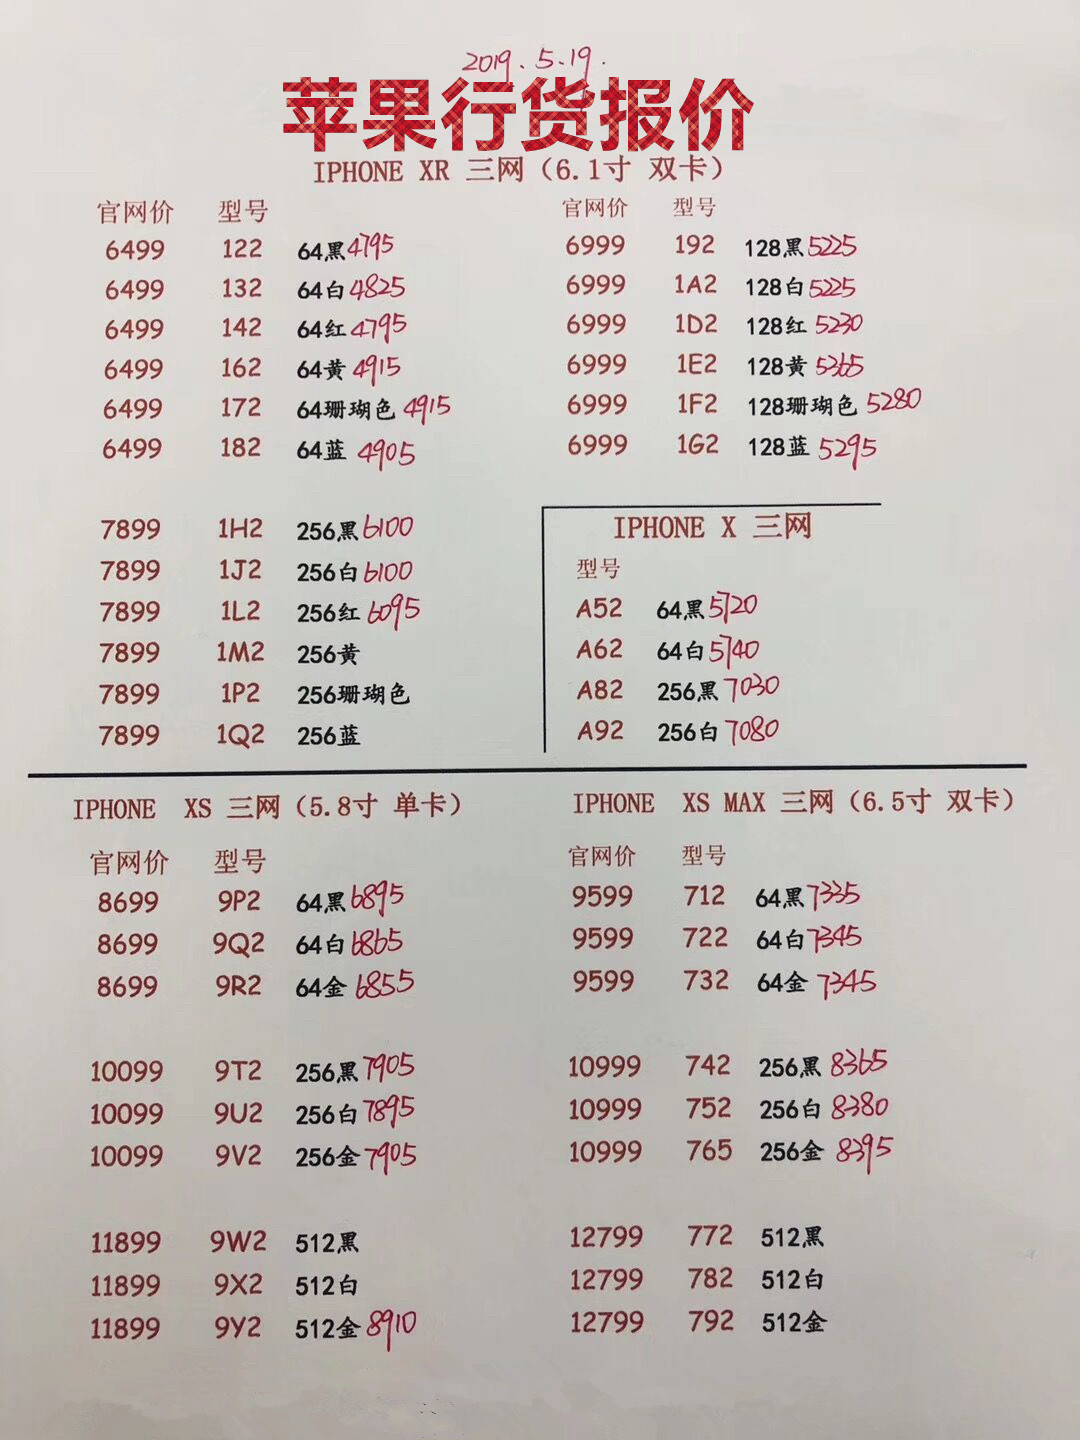 2019.5.19.
苹果行货报价
IPHONE XR 三网（6.1寸 双卡）
官网价 型号
6499 122 64黑 4795
6499 132 64白 4825
6499 142 64红 4795
6499 162 64黄 4915
6499 172 64珊瑚色 4915
6499 182 64蓝 4905
官网价 型号
6999 192 128黑 5225
6999 1A2 128白 5225
6999 1D2 128红 5230
6999 1E2 128黄 5365
6999 1F2 128珊瑚色 5280
6999 1G2 128蓝 5295
7899 1H2 256黑 6100
7899 1J2 256白 6100
7899 1L2 256红 6095
7899 1M2 256黄
7899 1P2 256珊瑚色
7899 1Q2 256蓝
IPHONE X 三网
型号
A52 64黑 5720
A62 64白 5740
A82 256黑 7030
A92 256白 7080
IPHONE XS 三网（5.8寸 单卡）
官网价 型号
8699 9P2 64黑 6895
8699 9Q2 64白 6865
8699 9R2 64金 6855
10099 9T2 256黑 7905
10099 9U2 256白 7895
10099 9V2 256金 7905
11899 9W2 512黑
11899 9X2 512白
11899 9Y2 512金 8910
IPHONE XS MAX 三网（6.5寸 双卡）
官网价 型号
9599 712 64黑 7335
9599 722 64白 7345
9599 732 64金 7345
10999 742 256黑 8365
10999 752 256白 8380
10999 765 256金 8395
12799 772 512黑
12799 782 512白
12799 792 512金